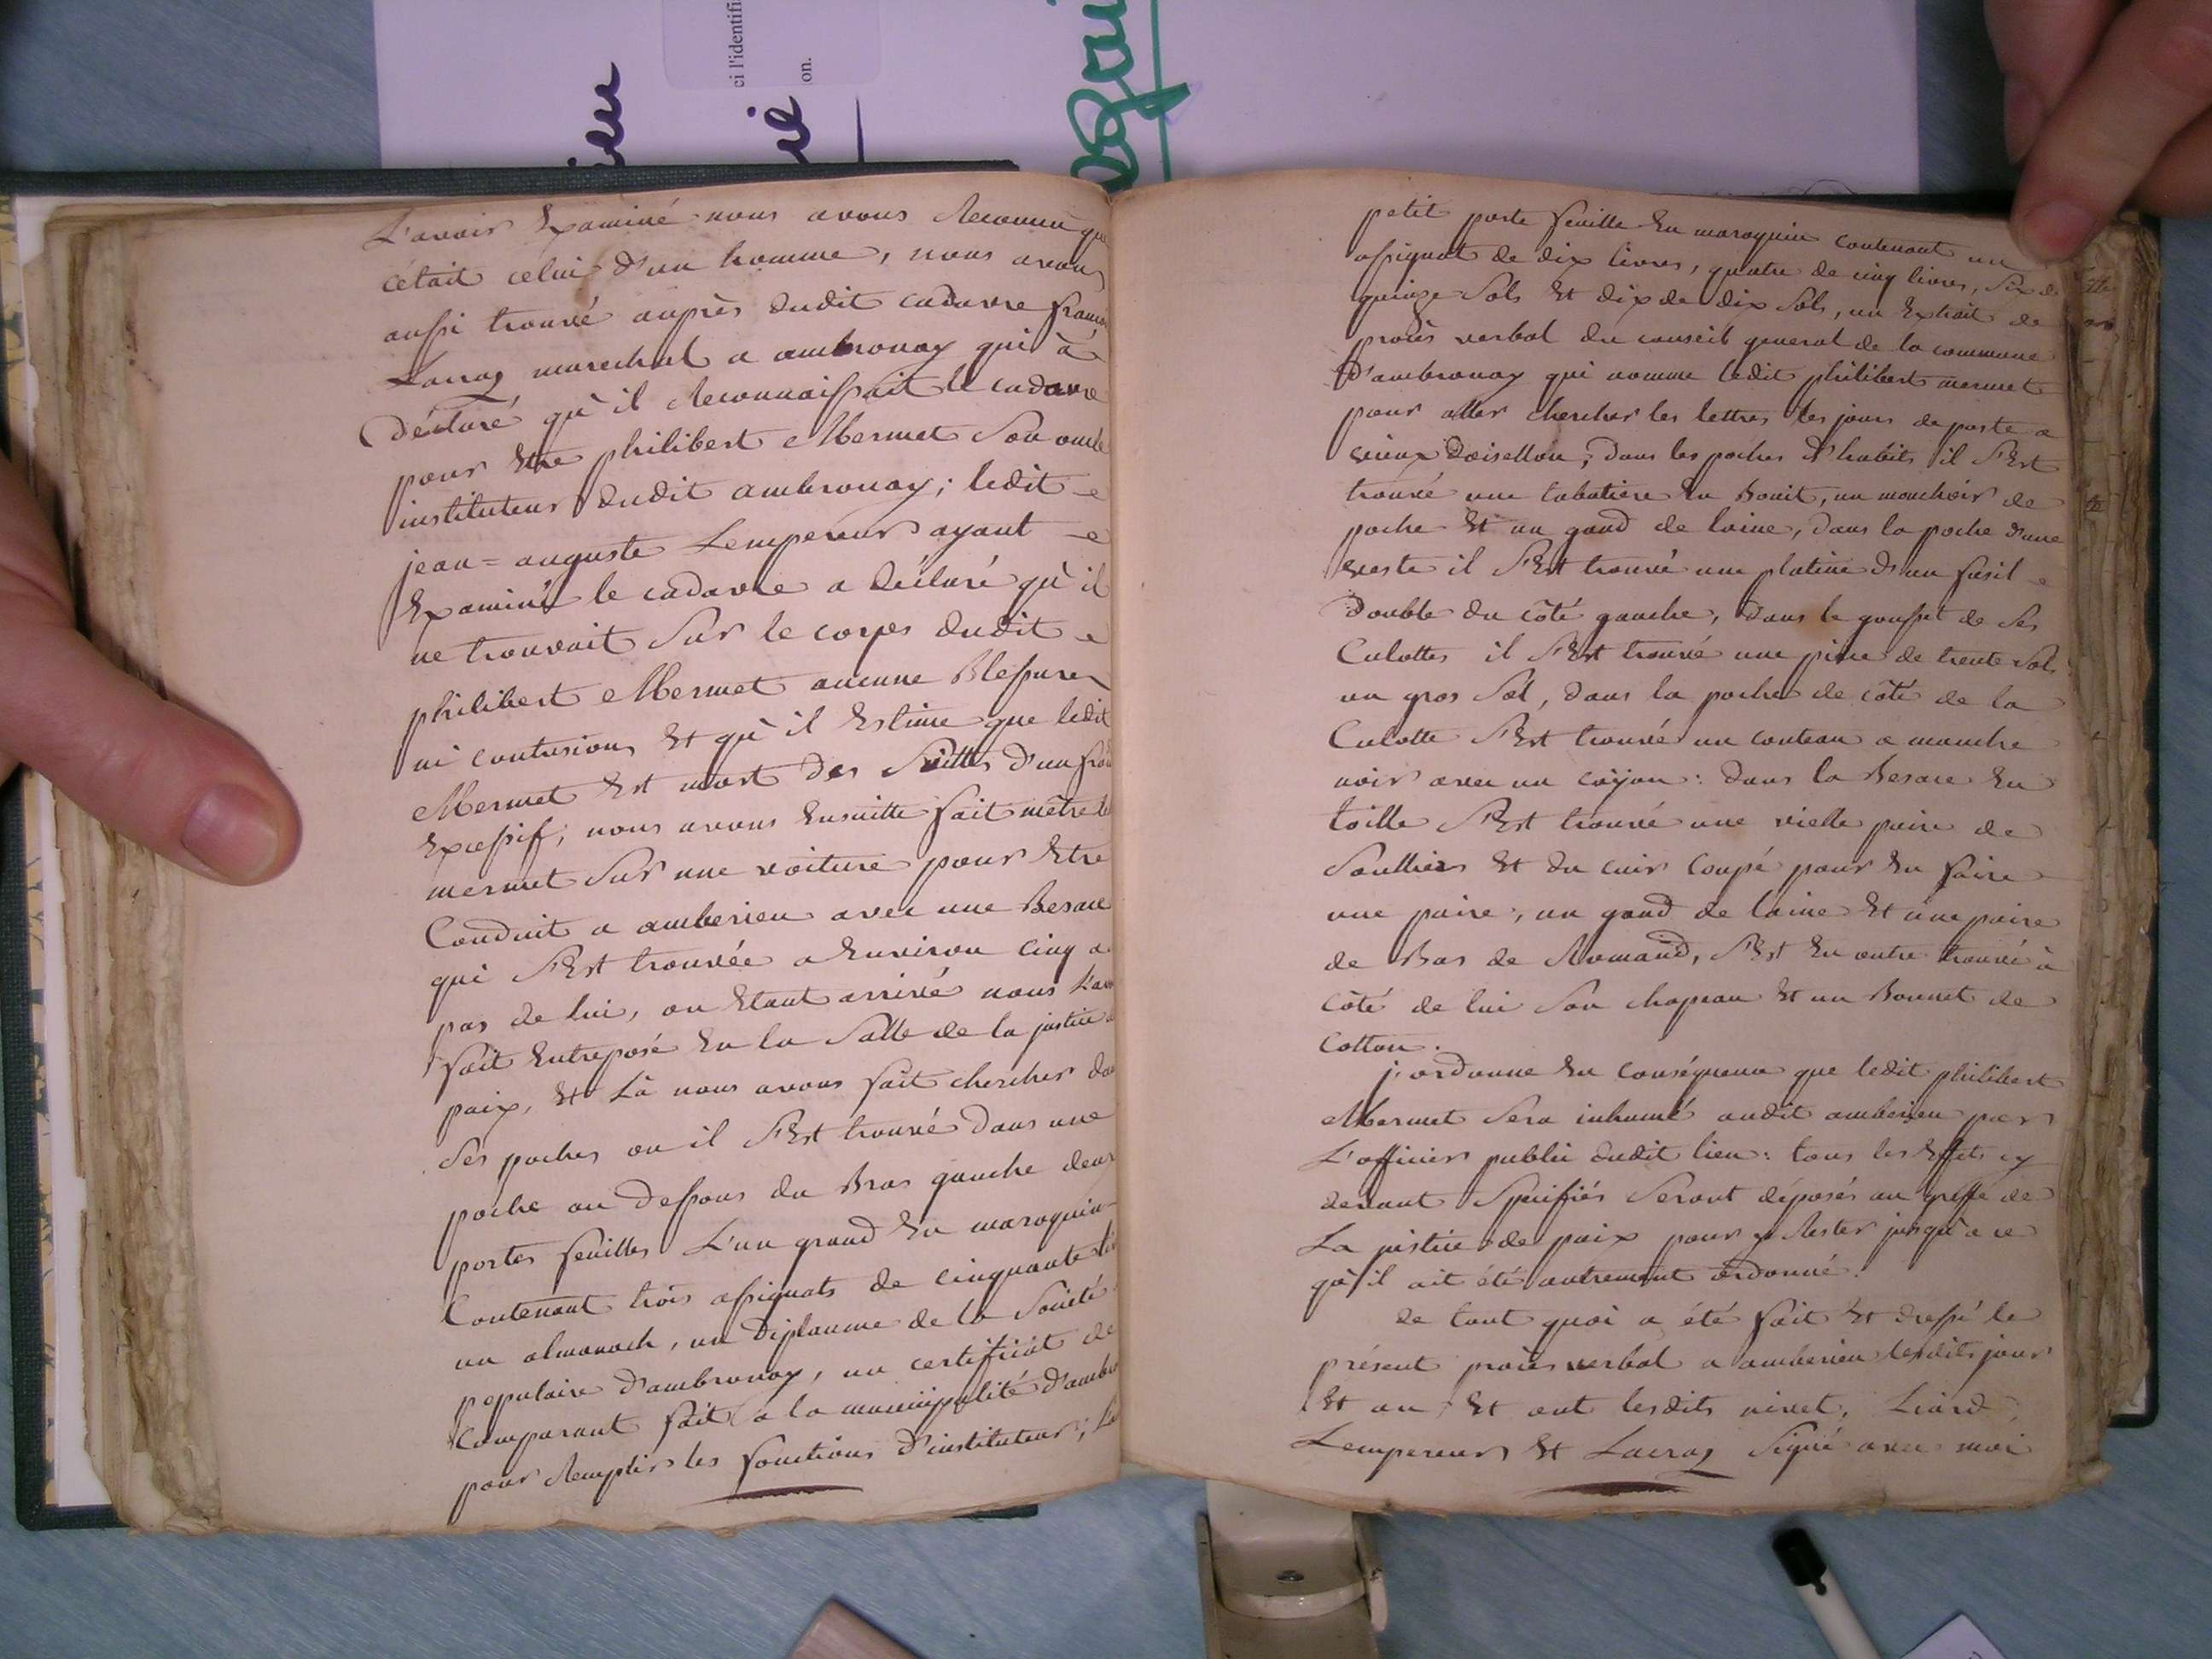 ci l'identifi
on.
L'avoir Examiné nous avons Reconnu que
c'était celui d'un homme, nous avons
aussi trouvé auprès dudit cadavre françois
Lacraz marechal a ambronay qui à
déclaré qu'il Reconnaissait le cadavre
pour Etre philibert Mermet Son oncle
instituteur dudit ambronay; ledit
jean=auguste Lempereur ayant
Examiné le cadavre a déclaré qu'il
ne trouvait Sur le corps dudit
philibert Mermet aucune Blessures
ni contusions Et qu'il Estime que ledit
Mermet Est mort des Suittes d'un froid
Excessif, nous avons Ensuitte fait mêtre le
mermet Sur une voiture pour Etre
Conduit a amberieu avec une Besace
qui S'Est trouvée a Environ cinq a
pas de lui, ou Etant arrivé nous L'avo
fait Entreposé En la Salle de la justice d
paix, Et Là nous avons fait chercher da
Ses poches ou il S'Est trouvé dans une
poche au dessous du Bras gauche deux
portes feuilles L'un grand En maroquin
Contenant trois assignats de cinquante li
un almanach, un diplaume de la Société
populaire d'ambronay, un certificat de
Comparant fait a la municipalité d'ambro
pour Remplir les fonctions d'instituteur; Le
petit porte feuille En maroquin contenant un
assignat de dix livres, quatre de cinq livres, Six de
quinze Sols Et dix de dix Sols, un Extrait de
procès verbal du conseil general de la commune
d'ambronay qui nomme ledit philibert mermet
pour aller chercher les lettres les jours de poste a
cerieux Doisellon; dans les poches d'habits il S'Est
trouvé une tabatiere En Bouit, un mouchoir de
poche Et un gand de laine, dans la poche d'une
veste il S'Est trouvé une platine d'un fusil
double du côté gauche, dans le gousset de Ses
Culottes il S'Est trouvé une pièce de trente Sols
un gros Sol, dans la poche de côté de la
Culotte S'Est trouvé un couteau a manche
noir avec un cojon: dans la Besace En
toille S'Est trouvé une vielle paire de
Soulliers Et du cuir Coupé pour En faire
une paire, un gand de laine Et une paire
de Bas de Romand, S'Est En outre trouvé à
côté de lui Son chapeau Et un Bonnet de
Cotton.
j'ordonne En conséquence que ledit philibert
Mermet Sera inhumé audit amberieu par
L'officier public dudit lieu: tous les Effets cy
devant Spécifiés Seront déposés au greffe de
La justice de paix pour y Rester jusqu'a ce
qu'il ait été autrement ordonné.
de tout quoi a été fait Et dressé le
présent procès verbal a amberieu lesdits jour
Et an Et ont lesdits nivet, Liard
Lempereur Et Lacraz Signé avec moi